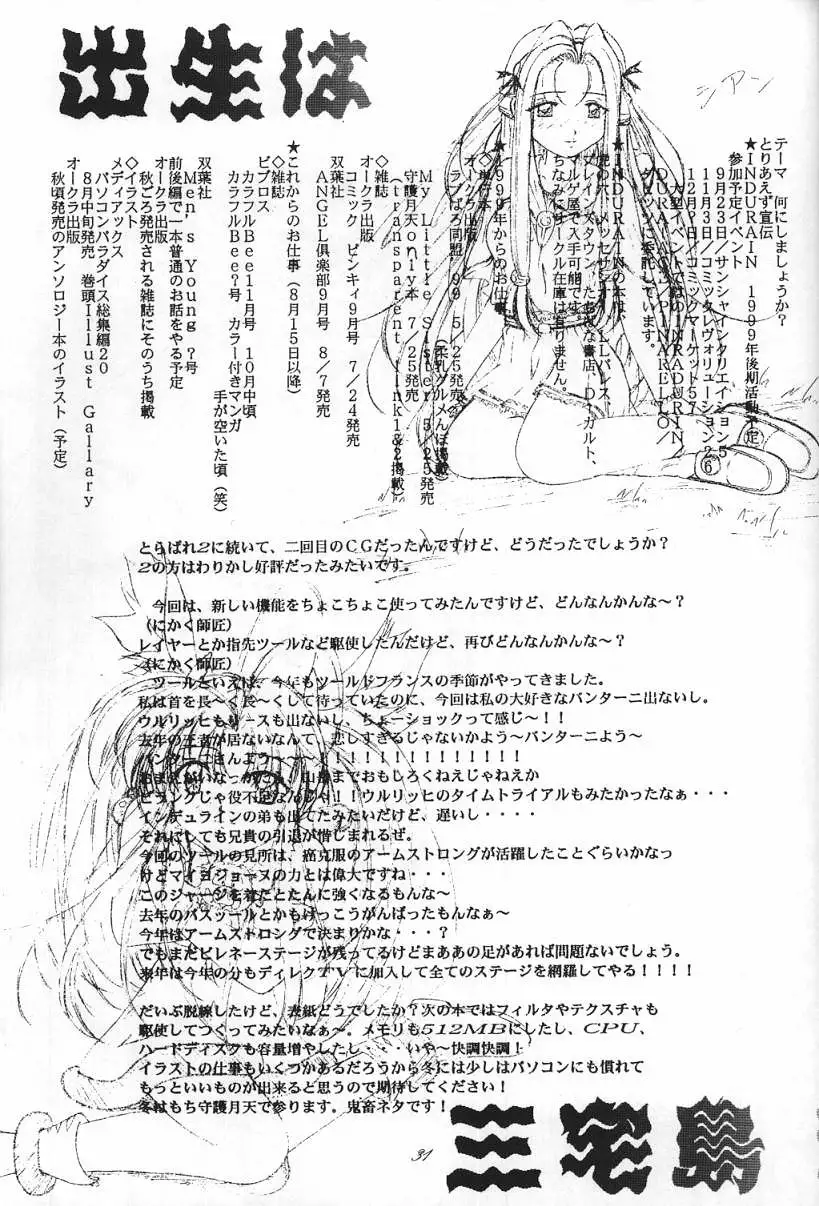 出生は
シアン
テーマ 何にしましょうか?
とりあえず宣伝
★INDURAIN 1999年後期活動予定
参加予定イベント
9月23日/サンシャインクリエイション5
11月3日/コミックレヴォリューション26
12月?日/コミックマーケット57
大型イベントではのINRADURIN/
DURA-ACE/PINARELLO/
ダミッツに委託しています。
★INDURAINの本は、
虎の穴、メッセサンオー、LLパレス、
ブレインズタウン、たちばな書店、D-カルト、
マルゲ屋で入手可能です。
ちなみにサークル在庫は有りません。
★1999年からのお仕事
◇単行本
オークラ出版
ラブぱろ同盟 99 5/25発売
(柔乳グルメんぼ掲載)
My Little Sister 5/25発売
守護月天only本 7/25発売
(transparent link1&2掲載)
◇雑誌
オークラ出版
コミック ピンキィ9月号 7/24発売
双葉社
ANGEL倶楽部9月号 8/7発売
★これからのお仕事(8月15日以降)
◇雑誌
ビブロス
カラフルBee11月号 10月中頃
カラフルBee?号 カラー付きマンガ
手が空いた頃(笑)
双葉社
Men's Young ?号
前後編で一本普通のお話をやる予定
オークラ出版
秋ごろ発売される雑誌にそのうち掲載
◇イラスト
メディアックス
パソコンパラダイス総集編20
8月中旬発売 巻頭Illust Gallary
オークラ出版
秋頃発売のアンソロジー本のイラスト(予定)
とらぱれ2に続いて、二回目のCGだったんですけど、どうだったでしょうか?
2の方はわりかし好評だったみたいです。
今回は、新しい機能をちょこちょこ使ってみたんですけど、どんなんかんな~?
(にかく師匠)
レイヤーとか指先ツールなど駆使したんだけど、再びどんなんかんな~?
(にかく師匠)
ツールといえば、今年もツールドフランスの季節がやってきました。
私は首を長~く長~くして待っていたのに、今回は私の大好きなパンターニ出ないし。
ウルリッヒもリースも出ないし、ちょーショックって感じ~!!
去年の王者が居ないなんて、悲しすぎるじゃないかよう~パンターニよう~
パンターニさんよう~~~!!!!!!!!!!!!!!
おまえがいなっかたら、山岳までおもしろくねえじゃねえか
ビランクじゃ役不足なんじゃ!!ウルリッヒのタイムトライアルもみたかったなぁ・・・
インデュラインの弟も出てたみたいだけど、遅いし・・・・
それにしても兄貴の引退が惜しまれるぜ。
今回のツールの見所は、癌克服のアームストロングが活躍したことぐらいかなっ
けどマイヨジョーヌの力とは偉大ですね・・・
このジャージを着たとたんに強くなるもんな~
去年のバスツールとかもけっこうがんばったもんなぁ~
今年はアームストロングで決まりかな・・・?
でもまだピレネーステージが残ってるけどまああの足があれば問題ないでしょう。
来年は今年の分もディレクTVに加入して全てのステージを網羅してやる!!!!
だいぶ脱線したけど、表紙どうでしたか?次の本ではフィルタやテクスチャも
駆使してつくってみたいなぁ~。メモリも512MBにしたし、CPU、
ハードディスクも容量増やしたし・・・いや~快調快調!
イラストの仕事もいくつかあるだろうから冬には少しはパソコンにも慣れて
もっといいものが出来ると思うので期待してください!
冬はもち守護月天で参ります。鬼畜ネタです!
三宅島
31